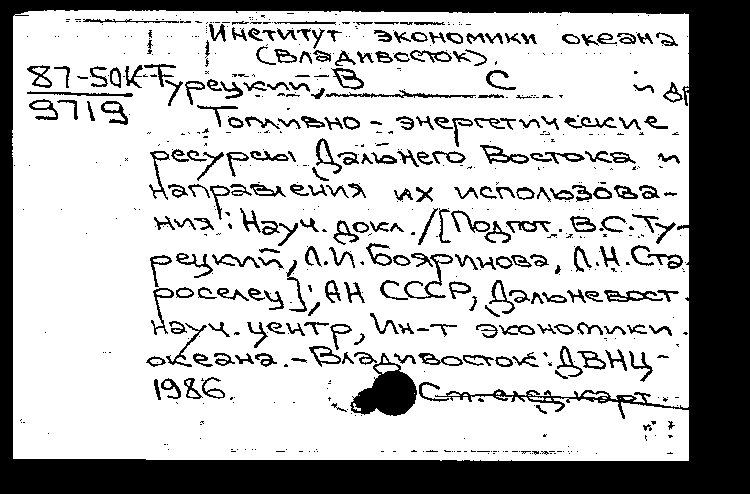 Институт экономики океана
(Владивосток).
87-50К Турецкий, В С и др
9719
Топливно-энергетические
ресурсы Дальнего Востока и
направления их использова-
ния: Науч. докл. /[Подгот. В.С. Ту-
рецкий, Л.И. Бояринова, Л.Н. Ста
роселец]; АН СССР, Дальневост.
науч. центр, Ин-т экономики
океана. - Владивосток: ДВНЦ-
1986.
См. след. карт.